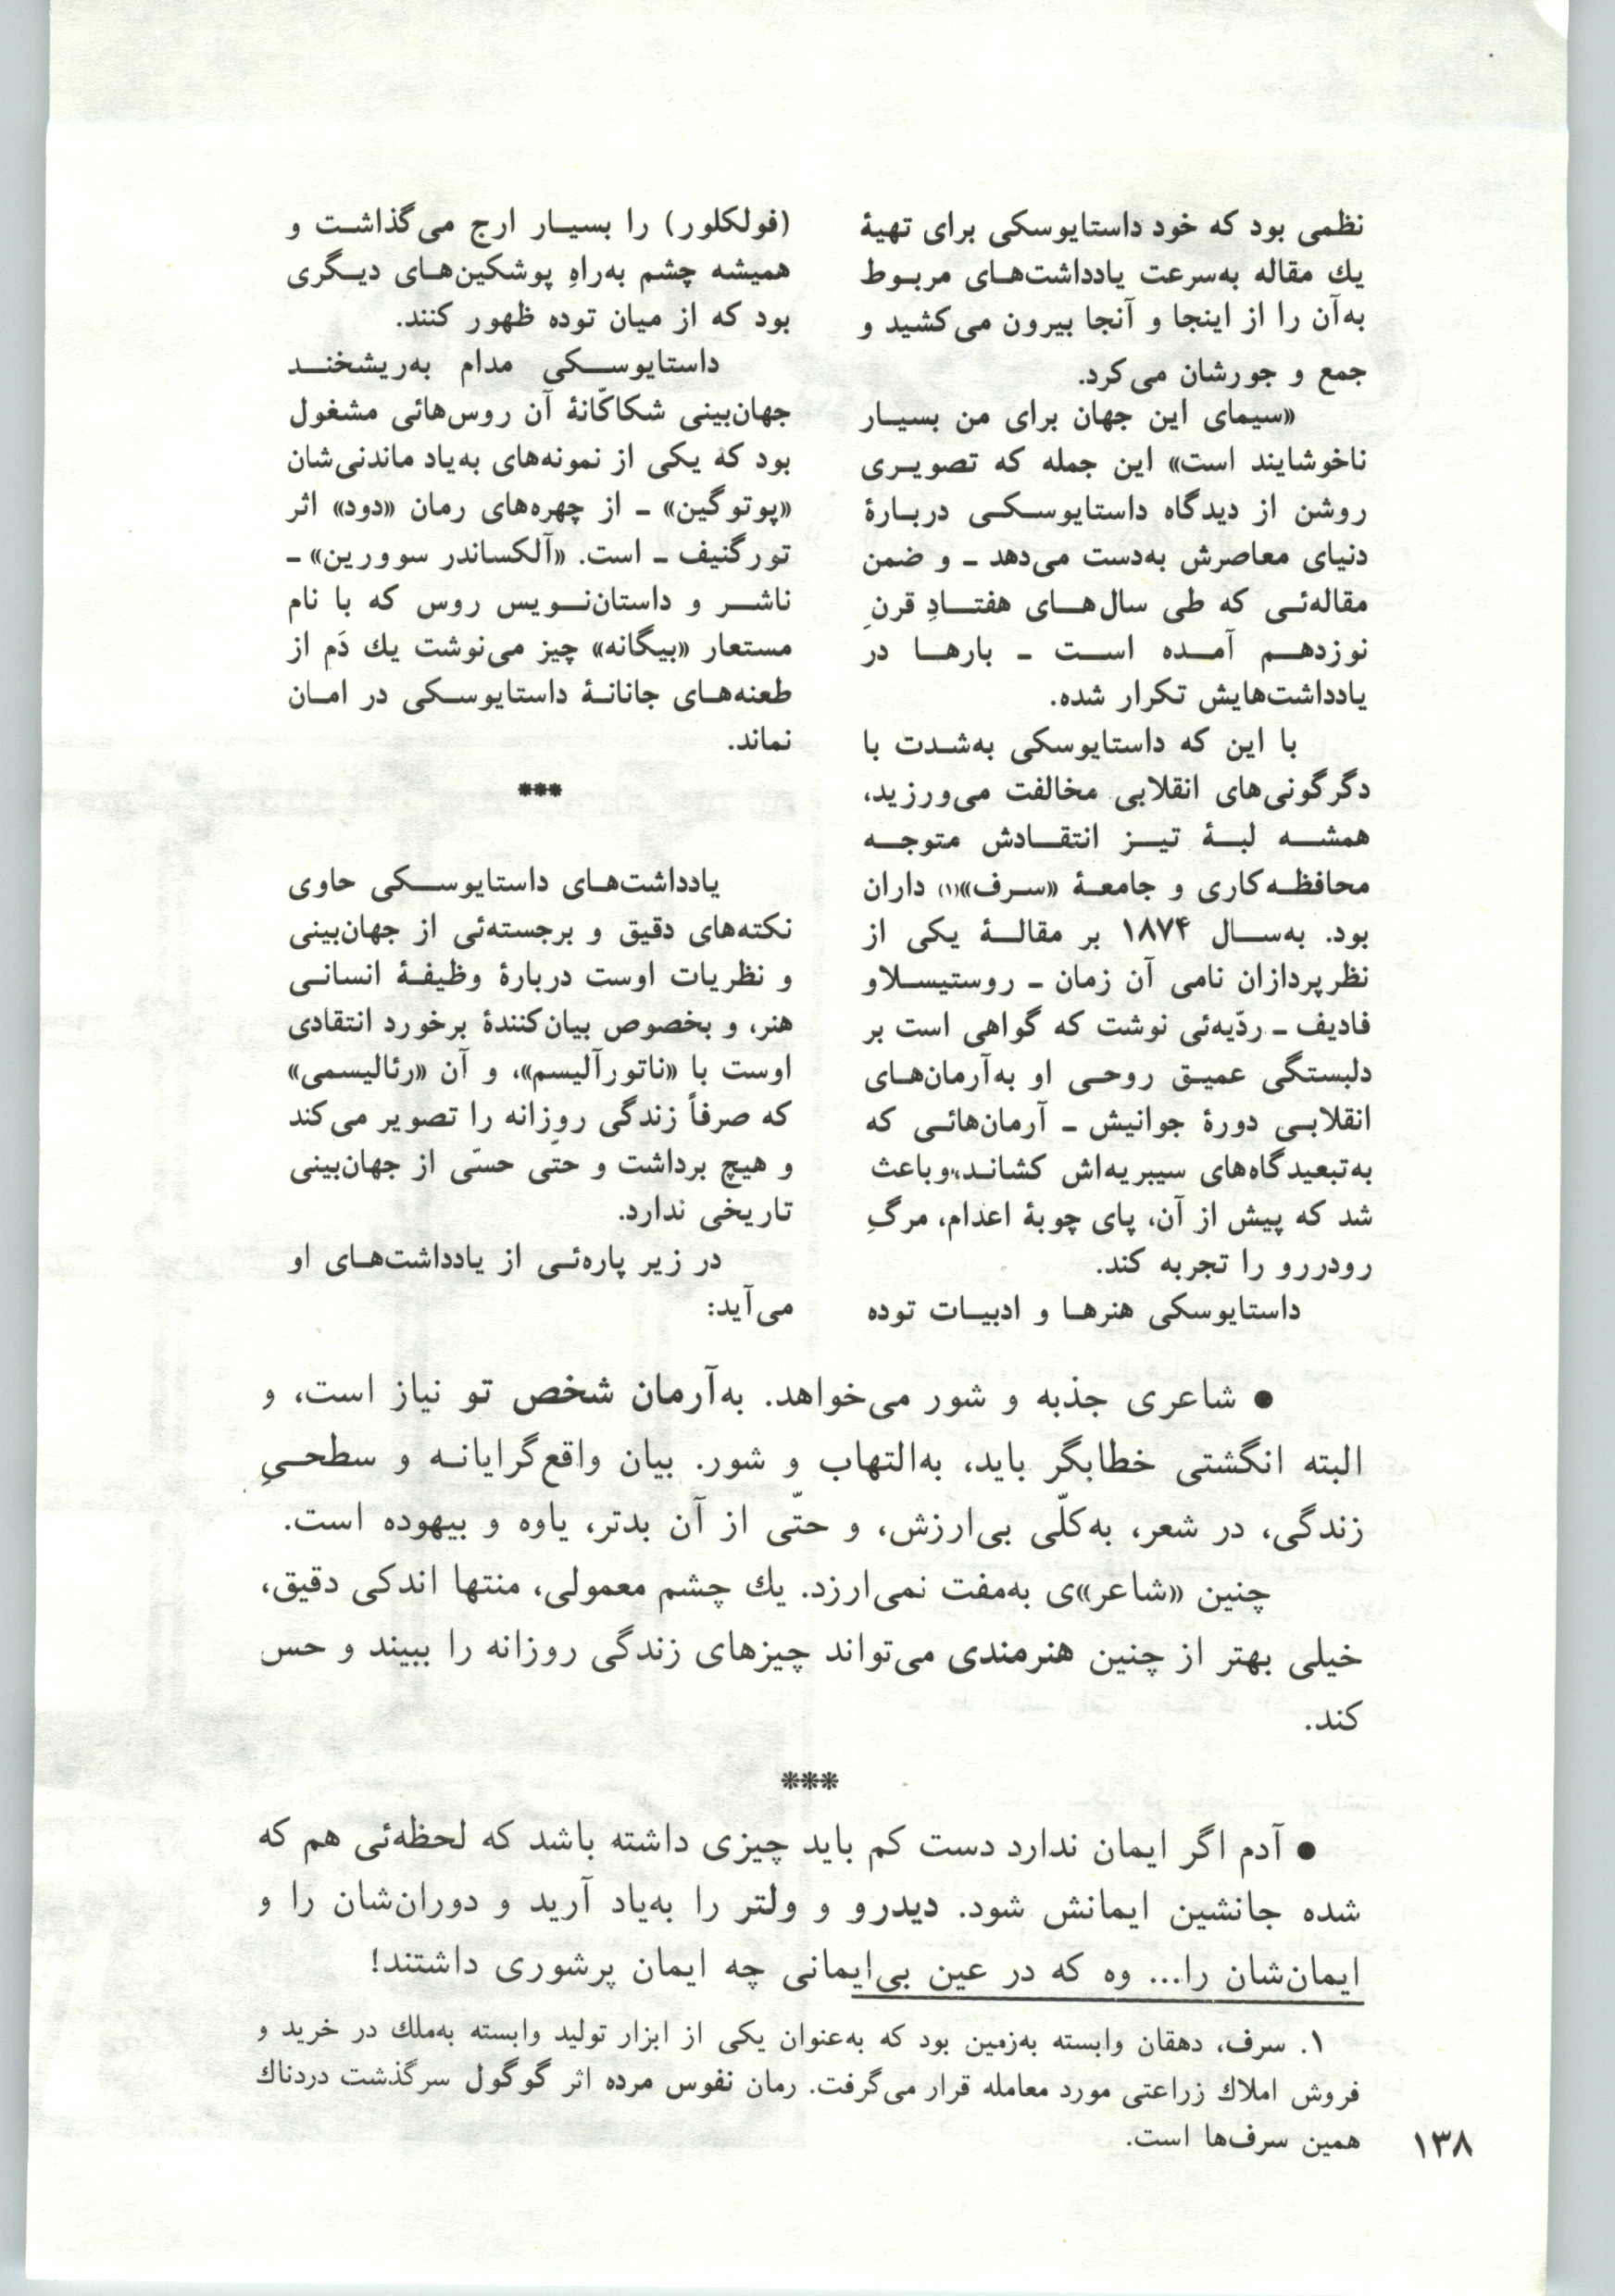 نظمی بود که خود داستایوسکی برای تهیهٔ
یك مقاله به‌سرعت یادداشت‌هـای مربـوط
به‌آن را از اینجا و آنجا بیرون می‌کشید و
جمع و جورشان می‌کرد.
«سیمای این جهان برای من بسیـار
ناخوشایند است» این جمله که تصویـری
روشن از دیدگاه داستایوسـکـی دربـارهٔ
دنیای معاصرش به‌دست می‌دهد ـ و ضمن
مقاله‌ئـی که طی سال‌هـای هفتـادِ قرنِ
نوزدهـم آمـده اسـت ـ بارهـا در
یادداشت‌هایش تکرار شده.
با این که داستایوسکی به‌شـدت با
دگرگونی‌های انقلابی مخالفت می‌ورزید،
همشـه لبـهٔ تیـز انتقـادش متوجـه
محافظـه‌کاری و جامعـهٔ «سـرف»(۱) داران
بود. به‌سـال ۱۸۷۴ بر مقالـهٔ یکی از
نظرپردازان نامی آن زمان ـ روستیسـلاو
فادیف ـ ردّیه‌ئی نوشت که گواهی است بر
دلبستگی عمیـق روحـی او به‌آرمان‌هـای
انقلابـی دورهٔ جوانیش ـ آرمان‌هائـی که
به‌تبعیدگاه‌های سیبریه‌اش کشانـد، و باعث
شد که پیش از آن، پای چوبهٔ اعدام، مرگِ
رودررو را تجربه کند.
داستایوسکی هنرهـا و ادبیـات توده
(فولکلور) را بسیـار ارج می‌گذاشـت و
همیشه چشم به‌راهِ پوشکین‌هـای دیـگری
بود که از میان توده ظهور کنند.
داستایوسـکی مدام به‌ریشخنـد
جهان‌بینی شکاکّانهٔ آن روس‌هائی مشغول
بود که یکی از نمونه‌های به‌یاد ماندنی‌شان
«پوتوگین» ـ از چهره‌های رمان «دود» اثر
تورگنیف ـ است. «آلکساندر سوورین» ـ
ناشـر و داستان‌نـویس روس که با نام
مستعار «بیگانه» چیز می‌نوشت یك دَم از
طعنه‌هـای جانانـهٔ داستایوسـکی در امـان
نماند.
***
یادداشت‌هـای داستایوسـکی حاوی
نکته‌های دقیق و برجسته‌ئی از جهان‌بینی
و نظریات اوست دربارهٔ وظیفـهٔ انسانـی
هنر، و بخصوص بیان‌کنندهٔ برخورد انتقادی
اوست با «ناتورآلیسم»، و آن «رئالیسمی»
که صرفاً زندگی روزانه را تصویر می‌کند
و هیچ برداشت و حتّی حسّی از جهان‌بینی
تاریخی ندارد.
در زیر پاره‌ئـی از یادداشت‌هـای او
می‌آید:
● شاعری جذبه و شور می‌خواهد. به‌آرمان شخص تو نیاز است، و
البته انگشتی خطابگر باید، به‌التهاب و شور. بیان واقع‌گرایانـه و سطحـیِ
زندگی، در شعر، به‌کلّی بی‌ارزش، و حتّی از آن بدتر، یاوه و بیهوده است.
چنین «شاعر»ی به‌مفت نمی‌ارزد. یك چشم معمولی، منتها اندکی دقیق،
خیلی بهتر از چنین هنرمندی می‌تواند چیزهای زندگی روزانه را ببیند و حس
کند.
***
● آدم اگر ایمان ندارد دست کم باید چیزی داشته باشد که لحظه‌ئی هم که
شده جانشین ایمانش شود. دیدرو و ولتر را به‌یاد آرید و دوران‌شان را و
ایمان‌شان را... وه که در عین بی‌ایمانی چه ایمان پرشوری داشتند!
۱. سرف، دهقان وابسته به‌زمین بود که به‌عنوان یکی از ابزار تولید وابسته به‌ملك در خرید و
فروش املاك زراعتی مورد معامله قرار می‌گرفت. رمان نفوس مرده اثر گوگول سرگذشت دردناك
همین سرف‌ها است.
۱۳۸